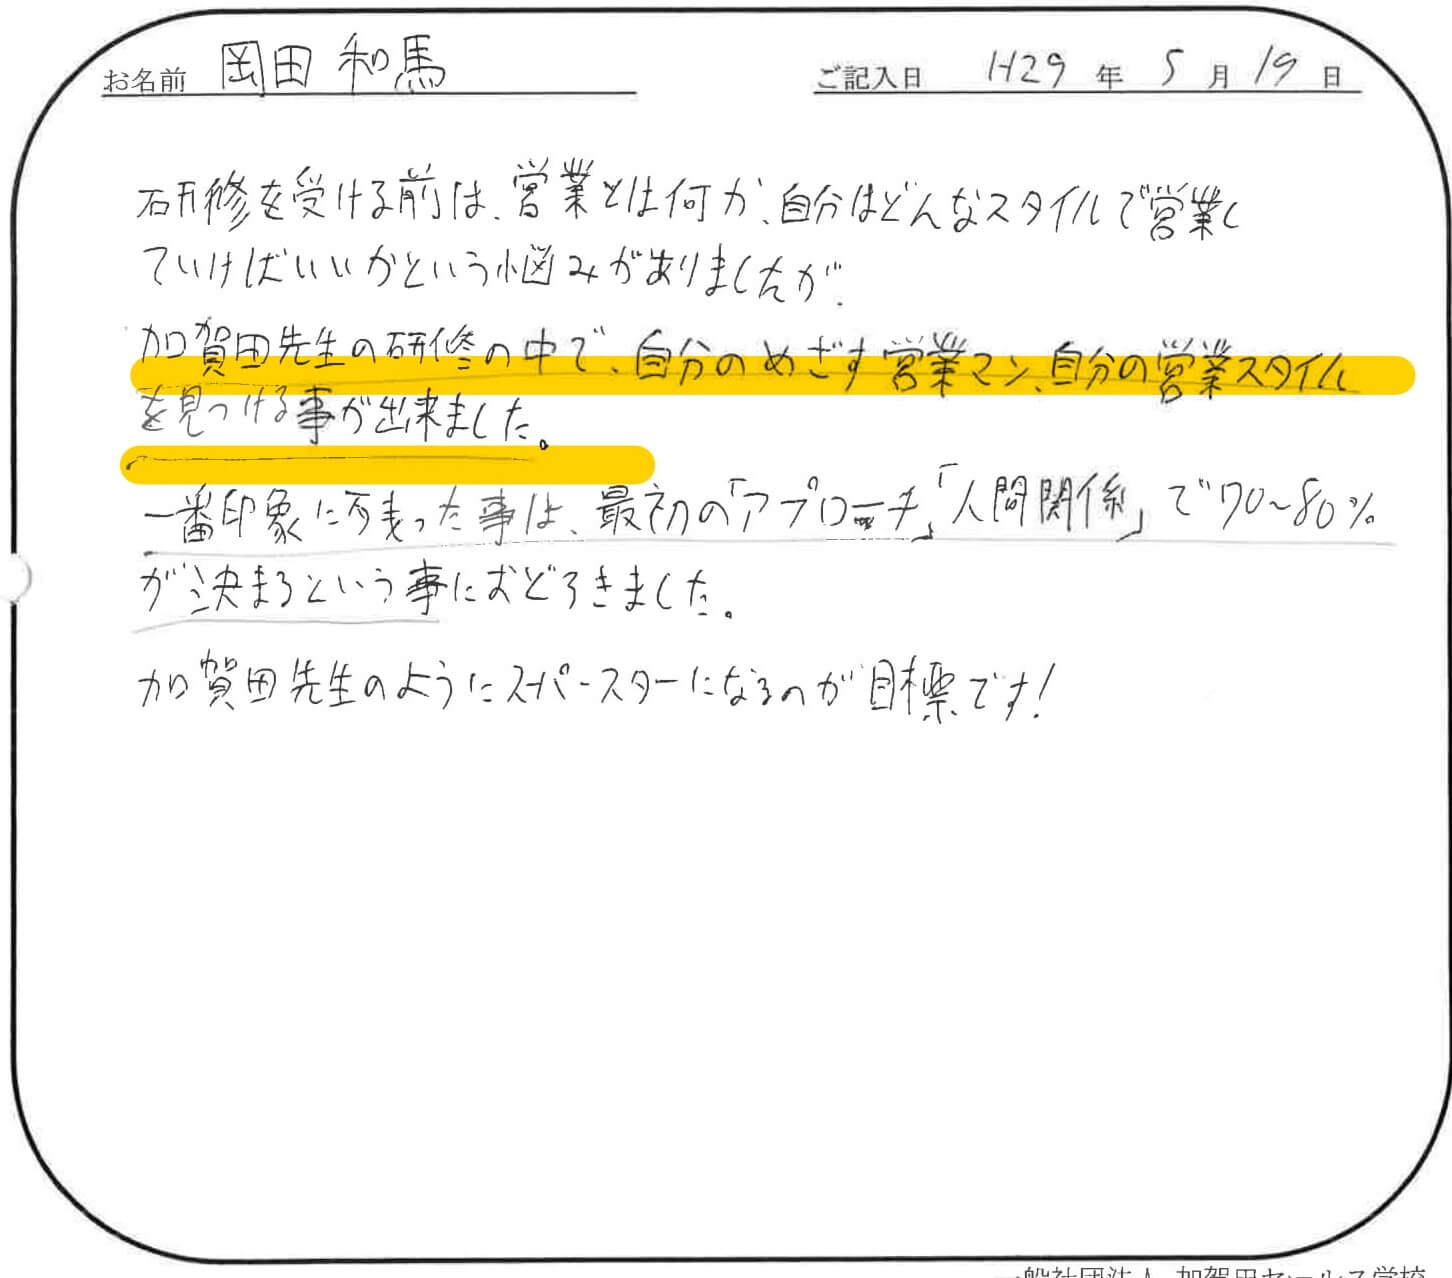 お名前 岡田 和馬 ご記入日 H29 年 5 月 19 日
研修を受ける前は、営業とは何か、自分はどんなスタイルで営業し
ていけばいいかという悩みがありましたが、
加賀田先生の研修の中で、自分のめざす営業マン、自分の営業スタイル
を見つける事が出来ました。
一番印象に残った事は、最初の「アプローチ」「人間関係」で70~80%
が決まるという事におどろきました。
加賀田先生のようにスーパースターになるのが目標です!
一般社団法人 加賀田セールス学校